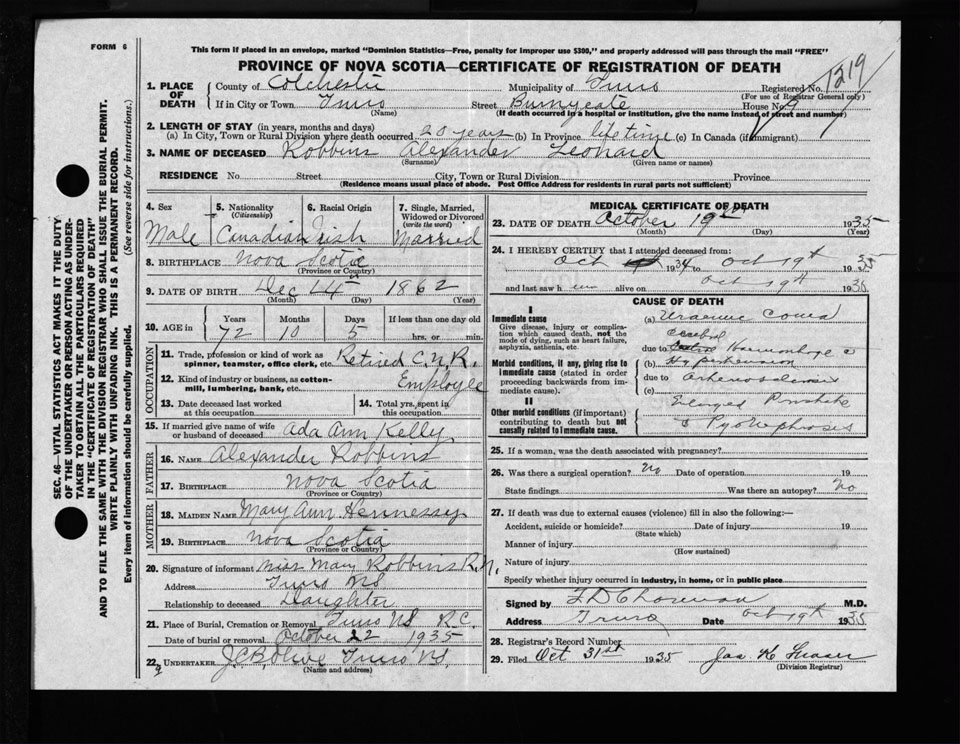 FORM 6
This form if placed in an envelope, marked "Dominion Statistics—Free, penalty for improper use $300," and properly addressed will pass through the mail "FREE"
PROVINCE OF NOVA SCOTIA—CERTIFICATE OF REGISTRATION OF DEATH
SEC. 46—VITAL STATISTICS ACT MAKES IT THE DUTY
OF THE UNDERTAKER OR PERSON ACTING AS UNDER-
TAKER TO OBTAIN ALL THE PARTICULARS REQUIRED
IN THE "CERTIFICATE OF REGISTRATION OF DEATH"
AND TO FILE THE SAME WITH THE DIVISION REGISTRAR WHO SHALL ISSUE THE BURIAL PERMIT.
WRITE PLAINLY WITH UNFADING INK. THIS IS A PERMANENT RECORD.
Every item of information should be carefully supplied. (See reverse side for instructions.)
1. PLACE OF DEATH County of Colchester Municipality of Truro Registered No. 1219
(For use of Registrar General only)
If in City or Town Truro Street Burnyeate House No. 9
(Name) (If death occurred in a hospital or institution, give the name instead of street and number)
2. LENGTH OF STAY (in years, months and days)
(a) In City, Town or Rural Division where death occurred 20 years (b) In Province life time (c) In Canada (if immigrant)
3. NAME OF DECEASED Robbins Alexander Leonard
(Surname) (Given name or names)
RESIDENCE No. Street City, Town or Rural Division Province
(Residence means usual place of abode. Post Office Address for residents in rural parts not sufficient)
4. Sex Male
5. Nationality (Citizenship) Canadian
6. Racial Origin Irish
7. Single, Married, Widowed or Divorced (write the word) Married
8. BIRTHPLACE Nova Scotia
(Province or Country)
9. DATE OF BIRTH Dec 14th 1862
(Month) (Day) (Year)
10. AGE in Years 72 Months 10 Days 5 If less than one day old hrs. or min.
OCCUPATION
11. Trade, profession or kind of work as spinner, teamster, office clerk, etc. Retired C.N.R.
12. Kind of industry or business, as cotton-mill, lumbering, bank, etc. Employee
13. Date deceased last worked at this occupation
14. Total yrs. spent in this occupation
15. If married give name of wife or husband of deceased Ada Ann Kelly
FATHER
16. Name Alexander Robbins
17. BIRTHPLACE Nova Scotia
(Province or Country)
MOTHER
18. MAIDEN NAME Mary Ann Hennessy
19. BIRTHPLACE Nova Scotia
(Province or Country)
20. Signature of informant Miss Mary Robbins R.N.
Address Truro NS
Relationship to deceased Daughter
21. Place of Burial, Cremation or Removal Truro NS R.C.
Date of burial or removal October 22 1935
22. UNDERTAKER J.C.B. Olive Truro NS.
(Name and address)
MEDICAL CERTIFICATE OF DEATH
23. DATE OF DEATH October 19th 1935
(Month) (Day) (Year)
24. I HEREBY CERTIFY that I attended deceased from:
Oct 1934 to Oct 19th 1935
and last saw him alive on Oct 19th 1935
CAUSE OF DEATH
I
Immediate cause
Give disease, injury or complication which caused death, not the mode of dying, such as heart failure, asphyxia, asthenia, etc.
(a) Uraemic Coma
Cerebral
due to Haemorrhage &
Morbid conditions, if any, giving rise to immediate cause (stated in order proceeding backwards from immediate cause).
(b) Hypertension
due to Arteriosclerosis
(c)
II
Other morbid conditions (if important) contributing to death but not causally related to immediate cause.
Enlarged Prostate
& Pyonephrosis
25. If a woman, was the death associated with pregnancy?
26. Was there a surgical operation? No Date of operation 19
State findings Was there an autopsy? No
27. If death was due to external causes (violence) fill in also the following:—
Accident, suicide or homicide? Date of injury 19
(State which)
Manner of injury
(How sustained)
Nature of injury
Specify whether injury occurred in industry, in home, or in public place
Signed by M.D.
Address Truro Date Oct 19th 1935
28. Registrar's Record Number
29. Filed Oct 31st 1935 Jas H Fraser
(Division Registrar)